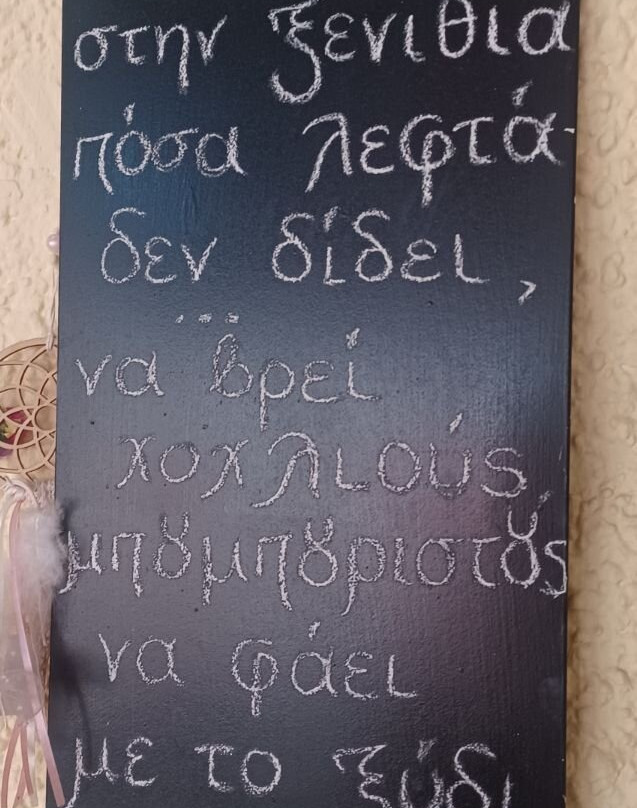 στην ξενιθιά
πόσα λεφτά
δεν δίδει,
...
να βρεί
χοχλιούς
μπȣμπȣριστȣ́ς
να φάει
με το ξύδι